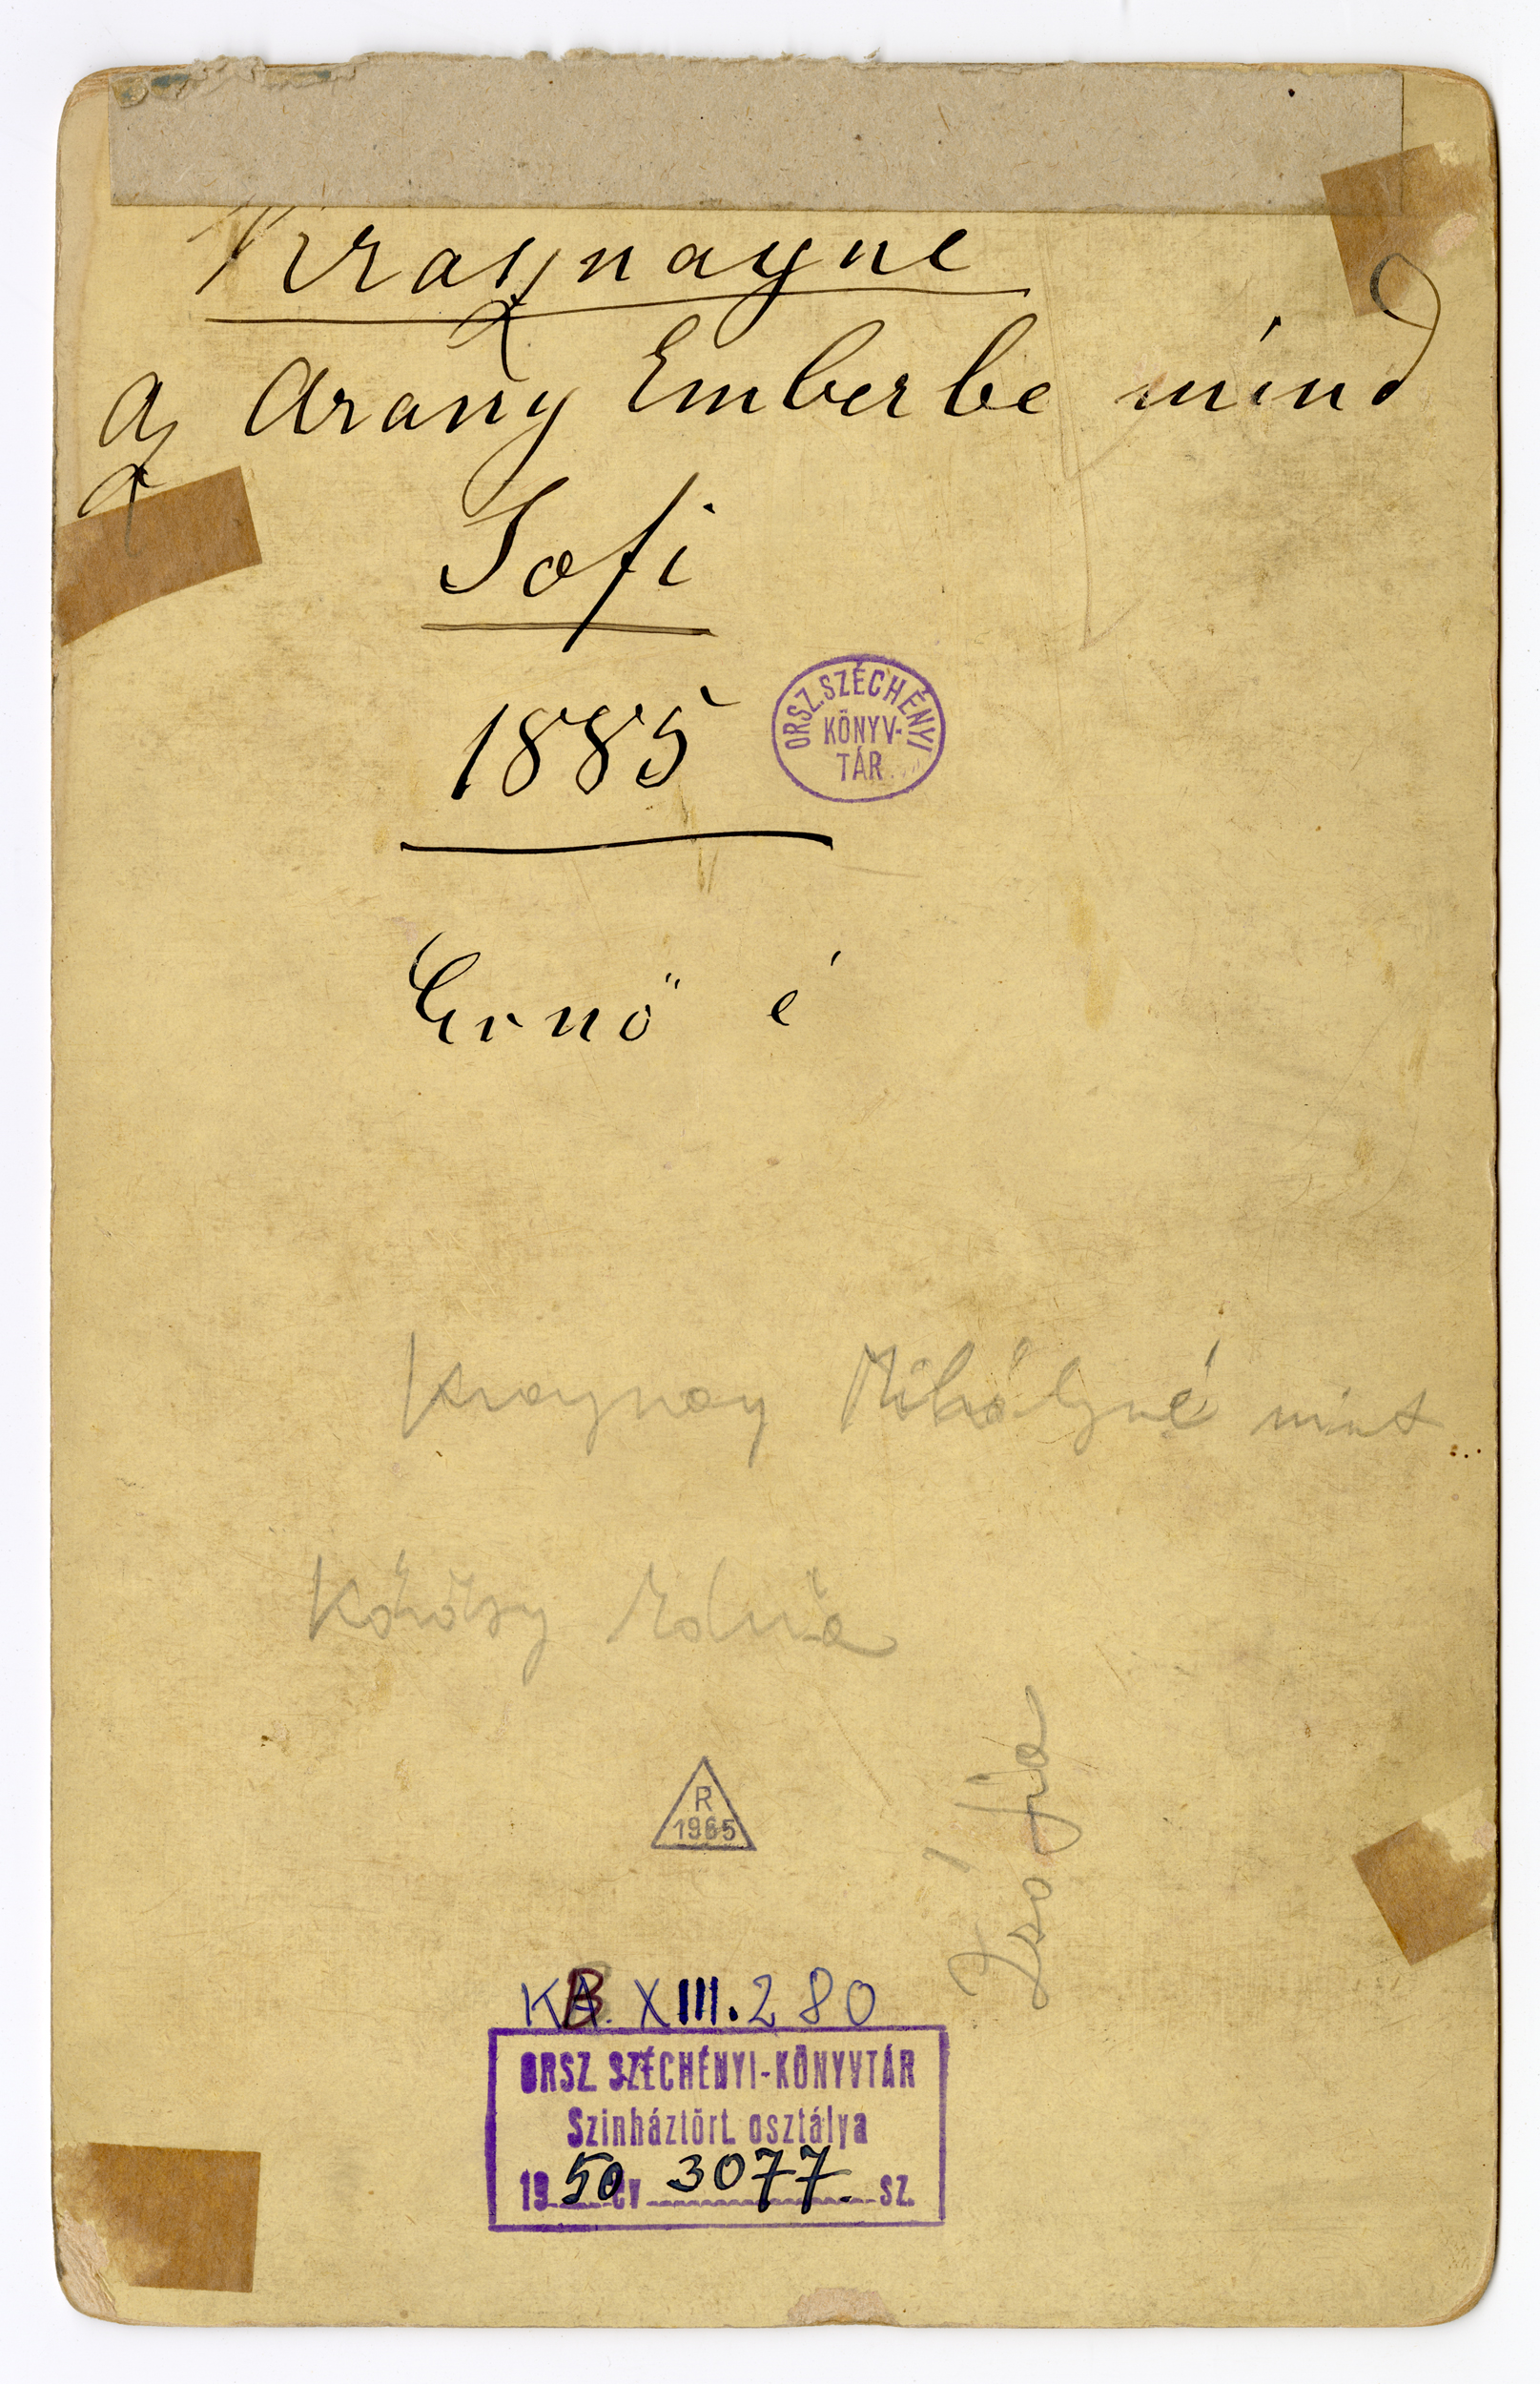 Kraynayne
az Arany Emberbe mind
Sofi
1885
ORSZ. SZÉCHÉNYI
KÖNYV-
TÁR
Ernő é
Kraynay Mihályné mint
Kőrösy
Zsófia
R
1965
KB. XIII. 280
ORSZ. SZÉCHÉNYI-KÖNYVTÁR
Szinháztört. osztálya
1950 év 3077. sz.